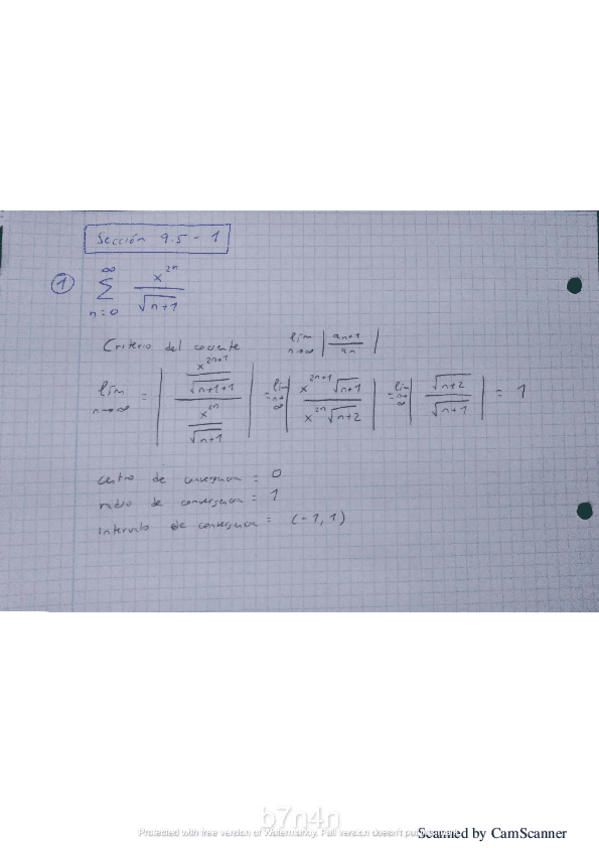 Sección 9.5 - 1
① ∑_{n=0}^{∞} x^{2n} / √(n+1)
Criterio del cociente lím_{n→∞} | a_{n+1} / a_n |
lím_{n→∞} = | (x^{2n+1} / √(n+1+1)) / (x^{2n} / √(n+1)) | = lím_{n→∞} | x^{2n+1} √(n+1) / (x^{2n} √(n+2)) | = lím_{n→∞} | √(n+2) / √(n+1) | = 1
centro de convergencia = 0
radio de convergencia = 1
intervalo de convergencia = (-1, 1)
b7n4n
Protected with free version of Watermarkly. Full version doesn't put
Scanned by CamScanner